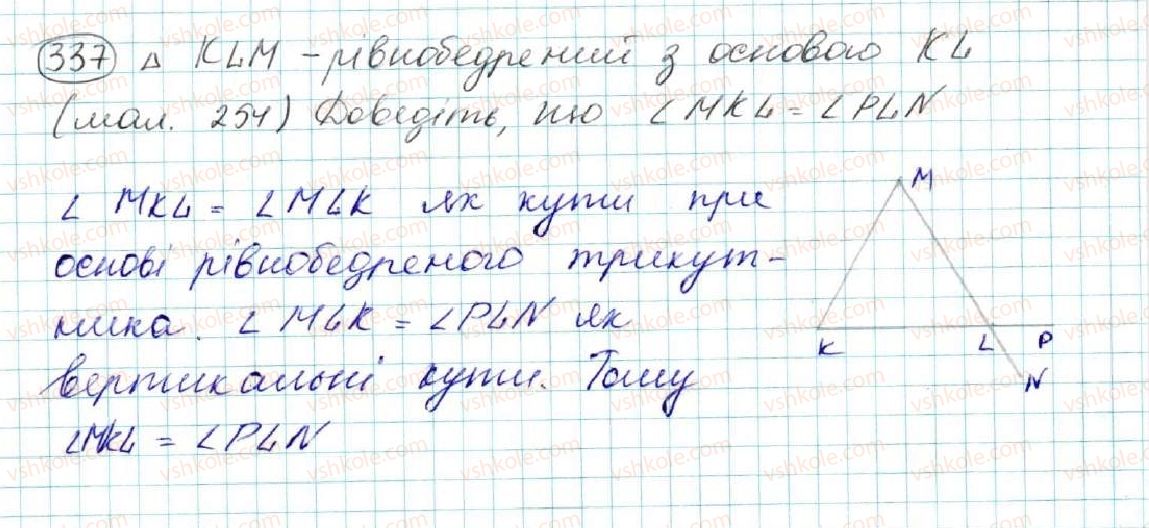 337 △ KLM – рівнобедрений з основою KL
(мал. 254) Доведіть, що ∠MKL = ∠PLN
∠MKL = ∠MLK як кути при
основі рівнобедреного трикут-
ника. ∠MLK = ∠PLN як
вертикальні кути. Тому
∠MKL = ∠PLN
M
K L P
N
vshkole.com